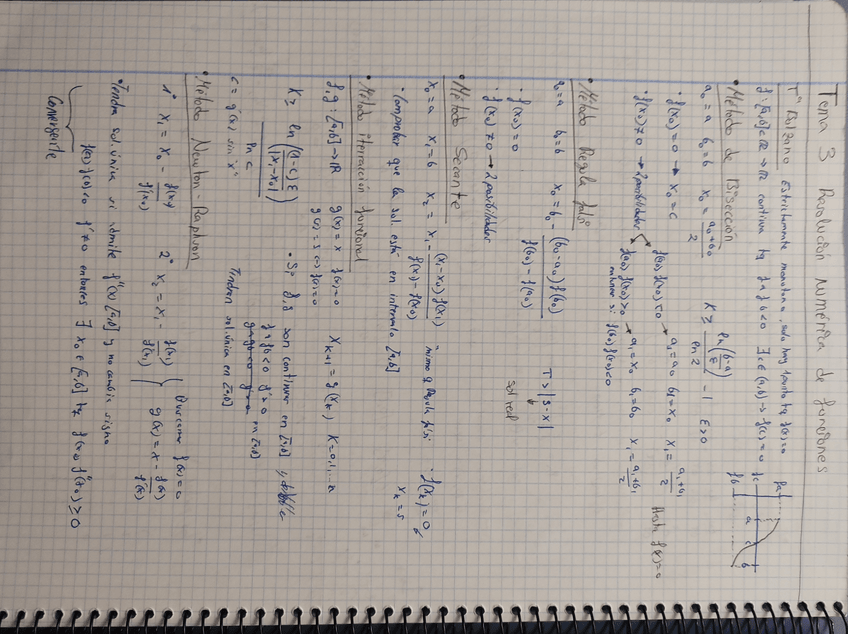 Tema 3 Resolución numérica de funciones
Tª Bolzano Estrictamente monotona, solo hay 1 punto tq f(x)=0
f:[a,b]⊂R→R continua tq fa·fb<0 ∃c∈(a,b)→f(c)=0
fa
fc
fb
a c b
• Método de Bisección
a₀=a b₀=b x₀=(a₀+b₀)/2 K≥ ln((b-a)/ε)/ln2 - 1 ε>0
• f(x₀)=0 → x₀=c
f(a₀)·f(x₀)<0 → a₁=a₀ b₁=x₀ x₁=(a₁+b₁)/2
• f(x₀)≠0 → 2 posibilidades
f(a₀)·f(x₀)>0 → a₁=x₀ b₁=b₀ x₁=(a₁+b₁)/2
Hasta f(x)=0
• Método Regula falsi
a₀=a b₀=b x₀=b₀-(b₀-a₀)f(b₀)/(f(b₀)-f(a₀))
T>|s-x|
sol real
• f(x₀)=0
• f(x₀)≠0 → 2 posibilidades
• Método Secante
x₀=a x₁=b x₂=x₁-(x₁-x₀)f(x₁)/(f(x₁)-f(x₀)) mismo q Regula falsi · f(x_k)=0
x_k=s
• Comprobar que la sol. está en intervalo [a,b]
• Método iteracción funcional
f,g:[a,b]→R g(x)=x f(x)=0 x_{k+1}=g(x_k) K=0,1...n
g(s)=s ⇔ f(s)=0
K≥ ln((1-c)ε/|x₁-x₀|)/ln c
• Si f,g son continuas en [a,b]
f·a·f·b<0 f'>0 en [a,b]
Tendrán sol. única en [a,b]
c=g'(x) sin "x"
• Método Newton-Raphson
1º x₁=x₀-f(x₀)/f'(x₀) 2º x₂=x₁-f(x₁)/f'(x₁) Buscamos f(x)=0
g(x)=x-f(x)/f'(x)
• Tendrá sol. única si admite f''(x) [a,b] y no cambia signo
f(a)·f(b)<0 f'≠0 entonces ∃x₀∈[a,b] tq f(x₀)·f''(x₀)≥0
Convergente